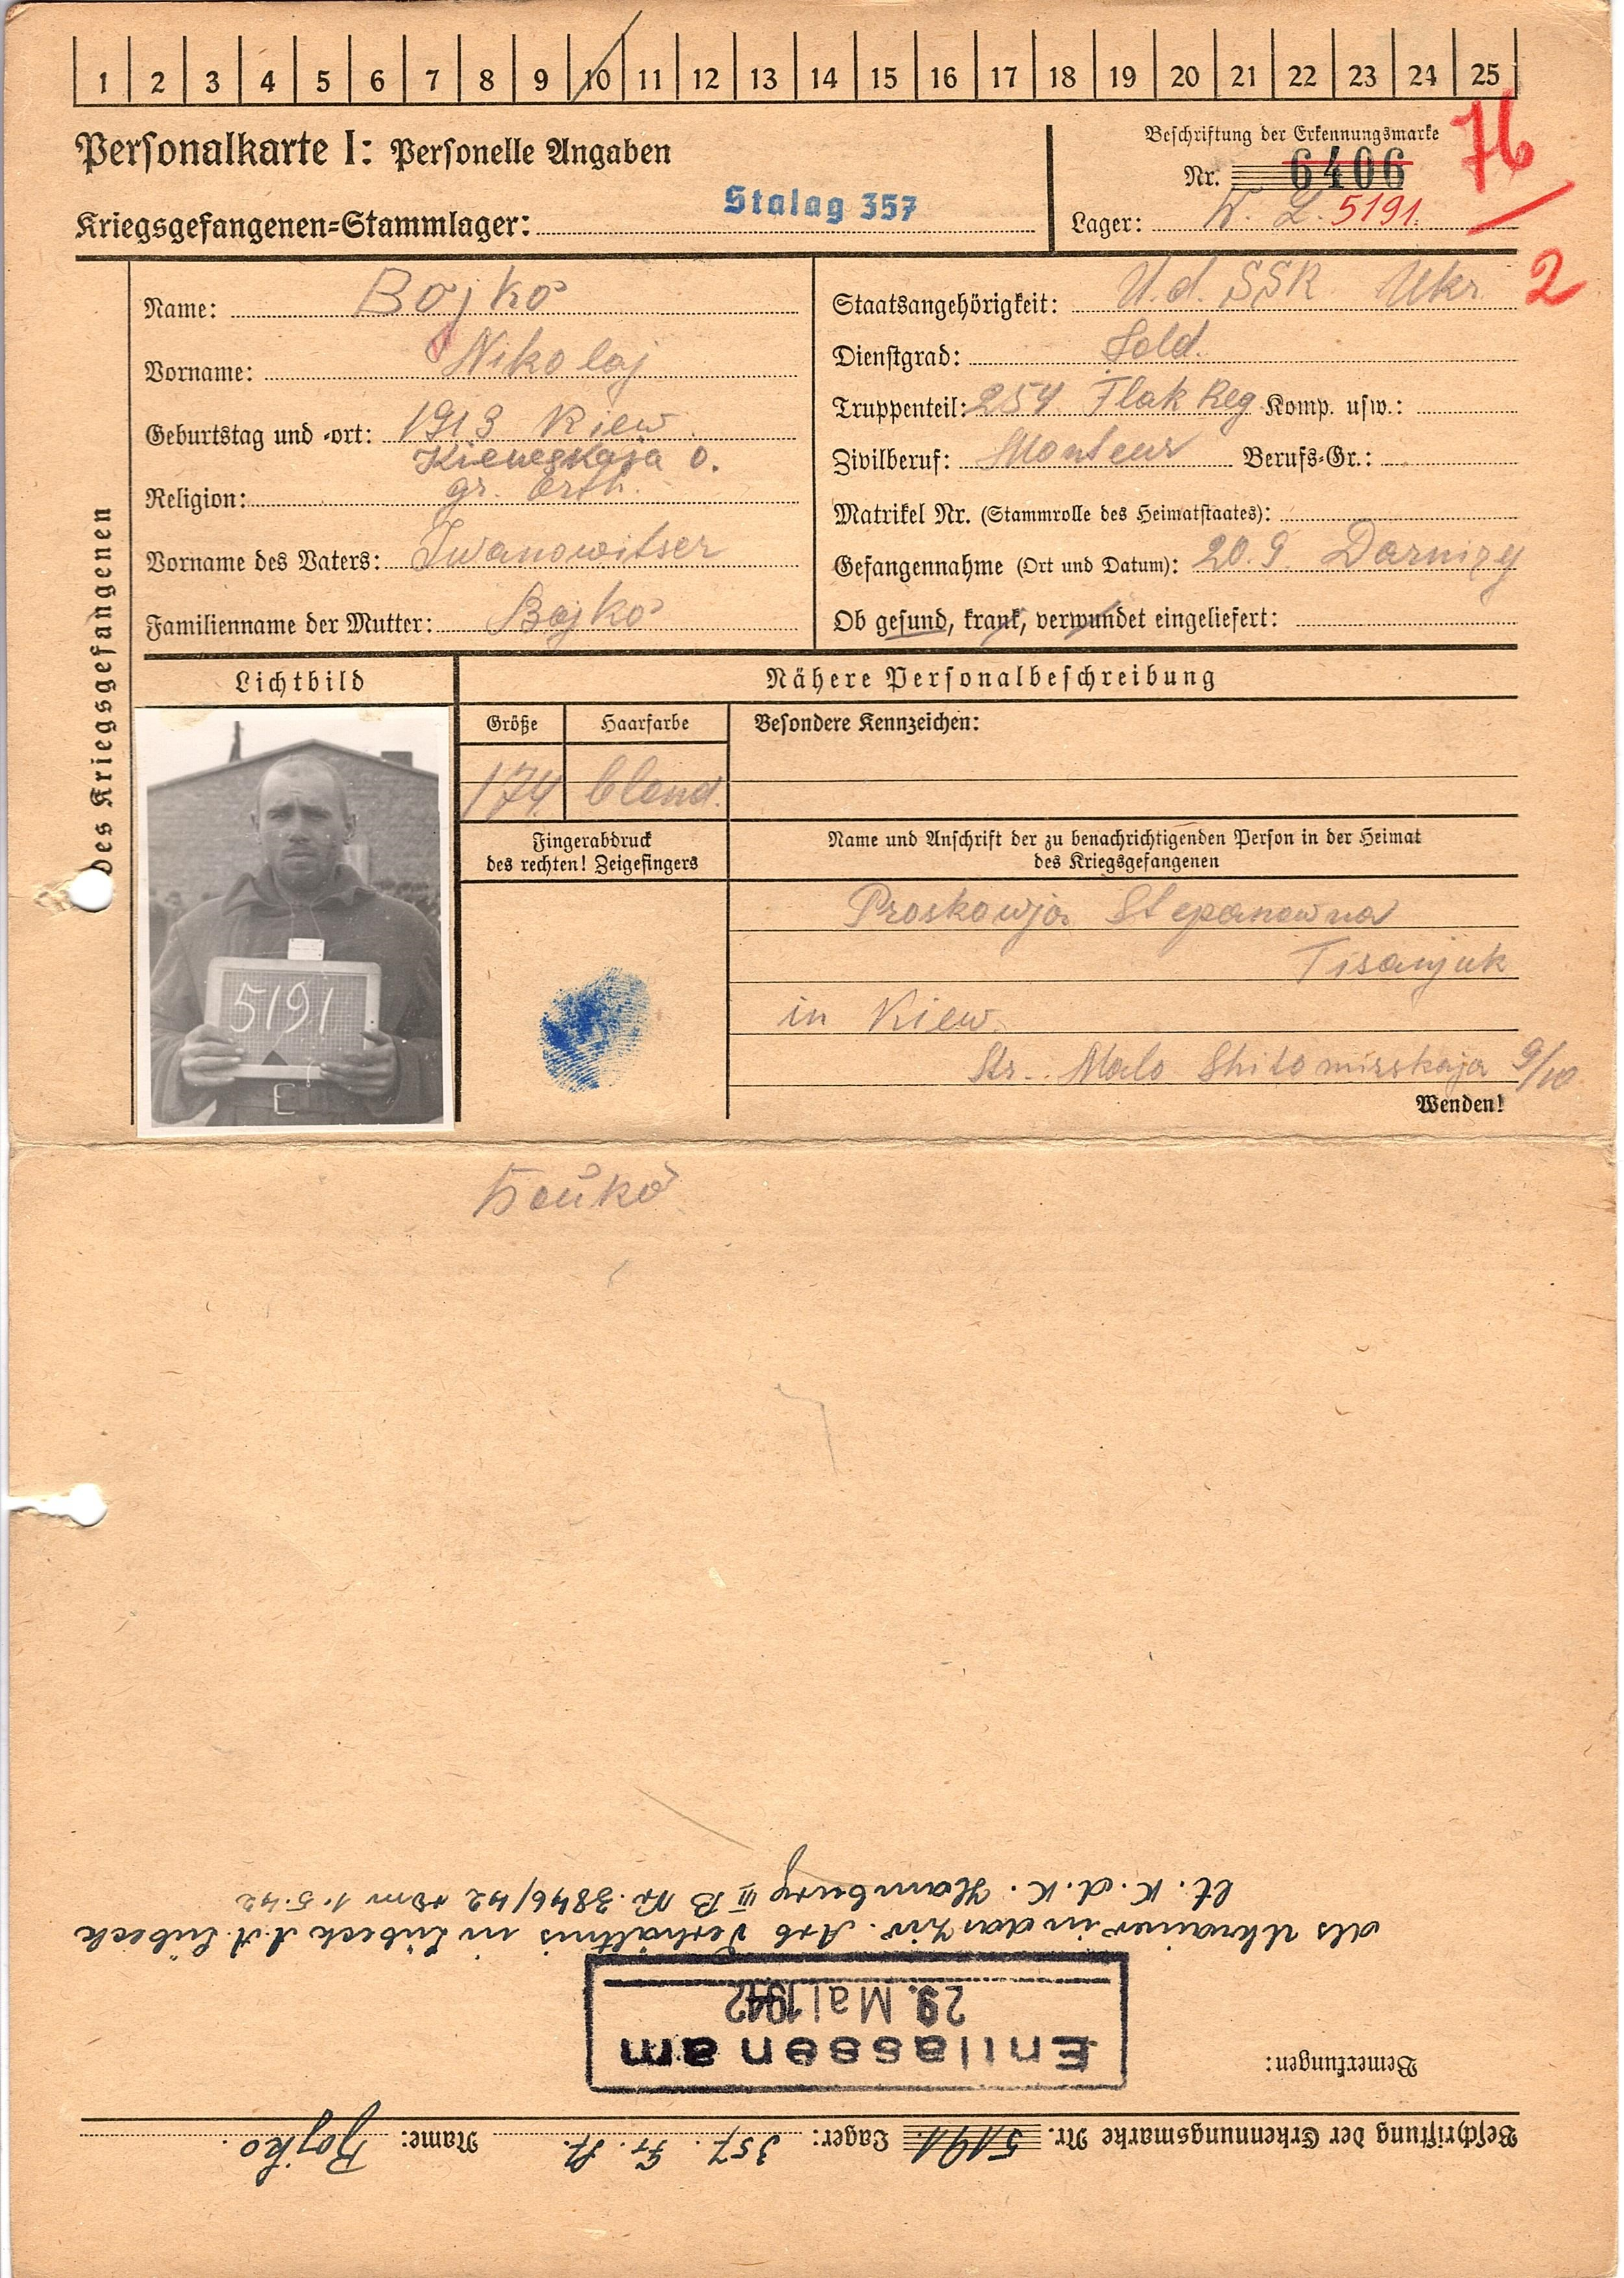 1 2 3 4 5 6 7 8 9 10 11 12 13 14 15 16 17 18 19 20 21 22 23 24 25
Personalkarte I: Personelle Angaben
Kriegsgefangenen-Stammlager: Stalag 357
Beschriftung der Erkennungsmarke
Nr. 6406
76
Lager: 5191.
2
des Kriegsgefangenen
Name: Bojko
Vorname: Nikolaj
Geburtstag und -ort: 1913 Kiew
Kiewskaja o.
Religion: gr. orth.
Vorname des Vaters: Iwanowitser
Familienname der Mutter: Bojko
Staatsangehörigkeit: U.d. SSR Ukr.
Dienstgrad: Sold.
Truppenteil: 254 Flak Reg Komp. usw.:
Zivilberuf: Monteur Berufs-Gr.:
Matrikel Nr. (Stammrolle des Heimatstaates):
Gefangennahme (Ort und Datum): 20.9. Darnizy
Ob gesund, krank, verwundet eingeliefert:
Lichtbild
Nähere Personalbeschreibung
Größe Haarfarbe Besondere Kennzeichen:
174 blond.
Fingerabdruck
des rechten! Zeigefingers
Name und Anschrift der zu benachrichtigenden Person in der Heimat
des Kriegsgefangenen
Proskowja Stepanowna
Tisanjuk
in Kiew.
Str. Malo Shitomirskaja 9/10
Wenden!
5191
Бойко
Beschriftung der Erkennungsmarke Nr. 5191. Lager: 357. Name: Bojko.
Bemerkungen:
Entlassen am
29. Mai 1942
als Ukrainer in das Ziv. Arb Verhältnis in Lübeck A.A. Lübeck
lt. K.d.K. Hamburg III B Nr. 3846/42 vom 1.5.42